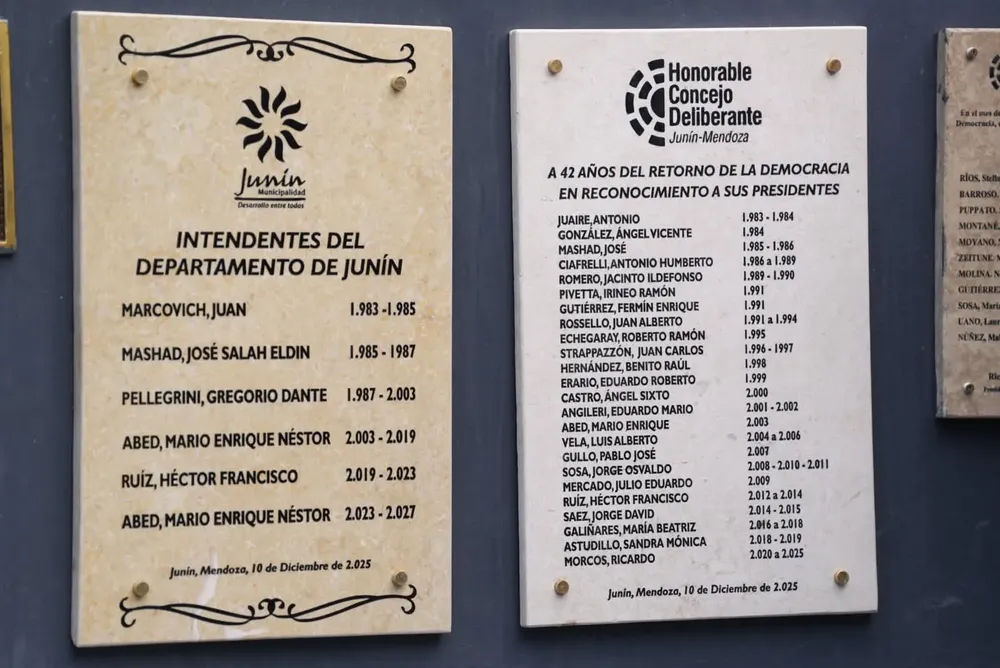 Junín
Municipalidad
Desarrollo entre todos
INTENDENTES DEL
DEPARTAMENTO DE JUNÍN
MARCOVICH, JUAN 1.983 -1.985
MASHAD, JOSÉ SALAH ELDIN 1.985 - 1987
PELLEGRINI, GREGORIO DANTE 1.987 - 2.003
ABED, MARIO ENRIQUE NÉSTOR 2.003 - 2.019
RUÍZ, HÉCTOR FRANCISCO 2.019 - 2.023
ABED, MARIO ENRIQUE NÉSTOR 2.023 - 2.027
Junín, Mendoza, 10 de Diciembre de 2.025
Honorable
Concejo
Deliberante
Junín-Mendoza
A 42 AÑOS DEL RETORNO DE LA DEMOCRACIA
EN RECONOCIMIENTO A SUS PRESIDENTES
JUAIRE, ANTONIO 1.983 - 1.984
GONZÁLEZ, ÁNGEL VICENTE 1.984
MASHAD, JOSÉ 1.985 - 1.986
CIAFRELLI, ANTONIO HUMBERTO 1.986 a 1.989
ROMERO, JACINTO ILDEFONSO 1.989 - 1.990
PIVETTA, IRINEO RAMÓN 1.991
GUTIÉRREZ, FERMÍN ENRIQUE 1.991
ROSSELLO, JUAN ALBERTO 1.991 a 1.994
ECHEGARAY, ROBERTO RAMÓN 1.995
STRAPPAZZÓN, JUAN CARLOS 1.996 - 1.997
HERNÁNDEZ, BENITO RAÚL 1.998
ERARIO, EDUARDO ROBERTO 1.999
CASTRO, ÁNGEL SIXTO 2.000
ANGILERI, EDUARDO MARIO 2.001 - 2.002
ABED, MARIO ENRIQUE 2.003
VELA, LUIS ALBERTO 2.004 a 2.006
GULLO, PABLO JOSÉ 2.007
SOSA, JORGE OSVALDO 2.008 - 2.010 - 2.011
MERCADO, JULIO EDUARDO 2.009
RUÍZ, HÉCTOR FRANCISCO 2.012 a 2.014
SAEZ, JORGE DAVID 2.014 - 2.015
GALIÑARES, MARÍA BEATRIZ 2.016 a 2.018
ASTUDILLO, SANDRA MÓNICA 2.018 - 2.019
MORCOS, RICARDO 2.020 a 2.025
Junín, Mendoza, 10 de Diciembre de 2.025
En el mes de
Democracia,
RÍOS,
BARROSO,
PUPPATO,
MOYANO,
ZEITUNE,
MOLINA,
GUTIÉRREZ
SOSA,
NÚÑEZ,